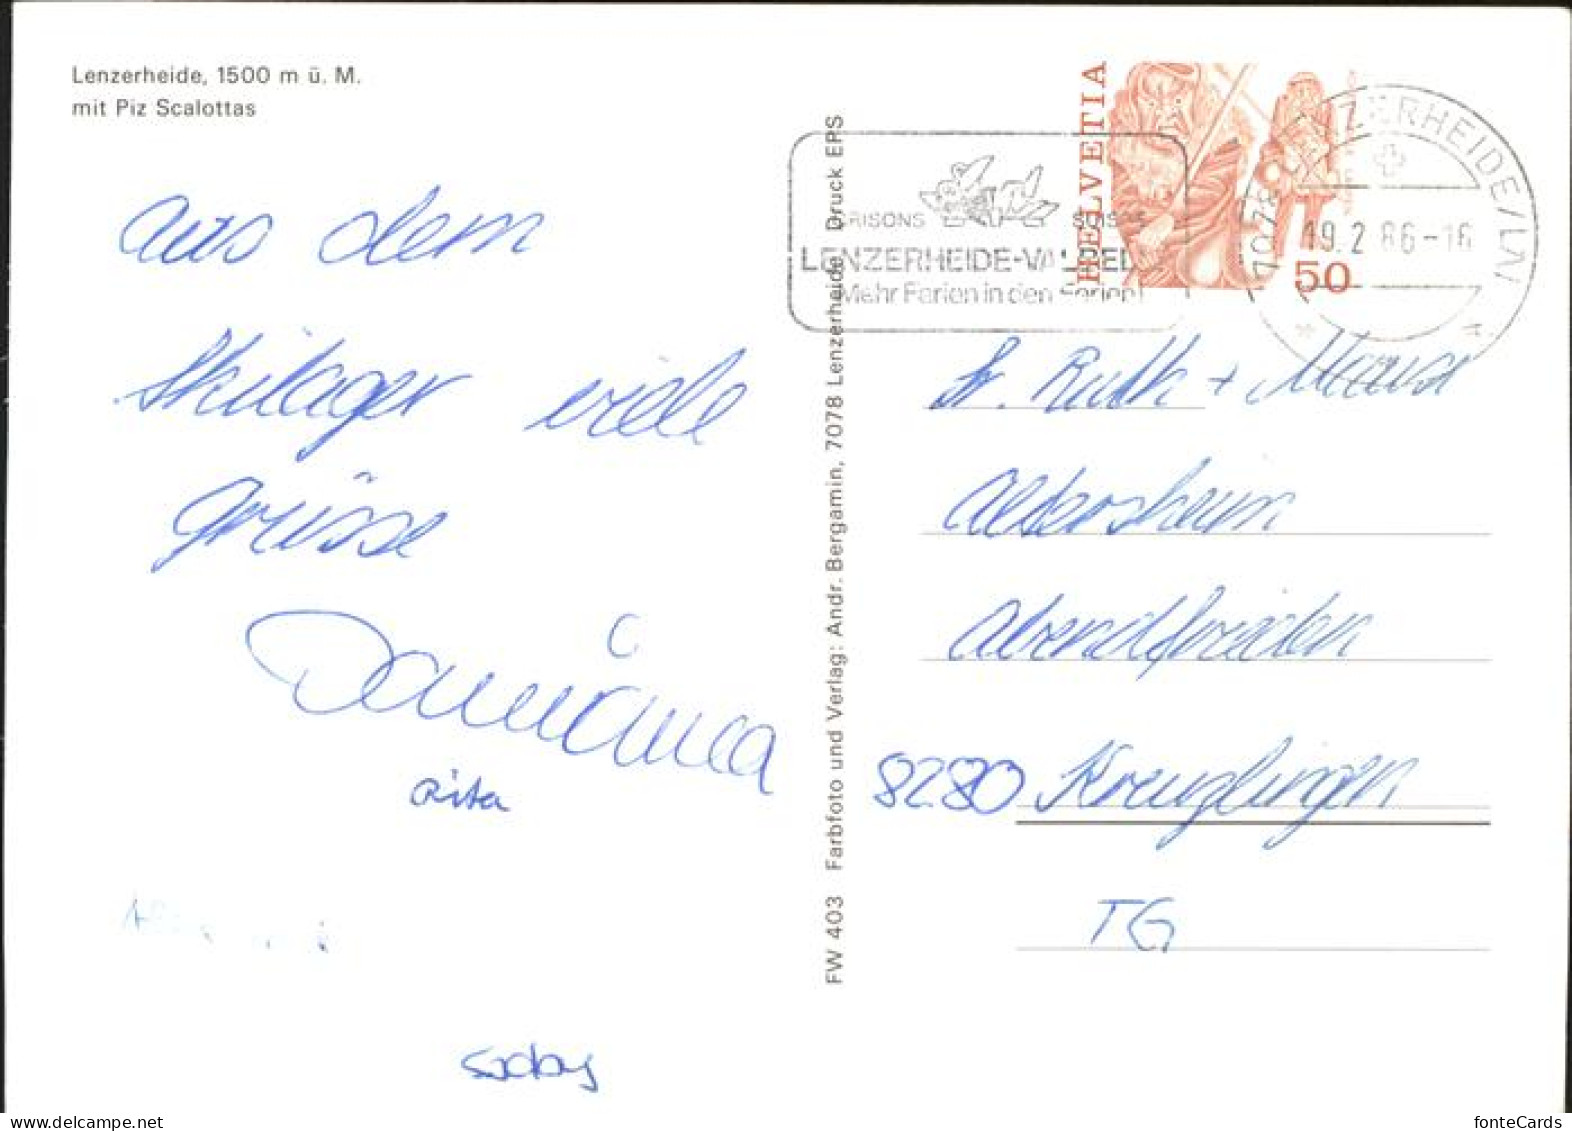 Lenzerheide, 1500 m ü. M.
mit Piz Scalottas
aus dem
Skilager viele
Grüsse
rita
FW 403 Farbfoto und Verlag: Andr. Bergamin, 7078 Lenzerheide Druck EPS
GRISONS SUISSE
LENZERHEIDE-VALBELLA
Mehr Ferien in den Ferien!
HELVETIA
50
7078 LENZERHEIDE/LAI
19.2.86-16
Sr. Ruth +
Altersheim
Abendfrieden
8280 Kreuzlingen
TG
fonteCards